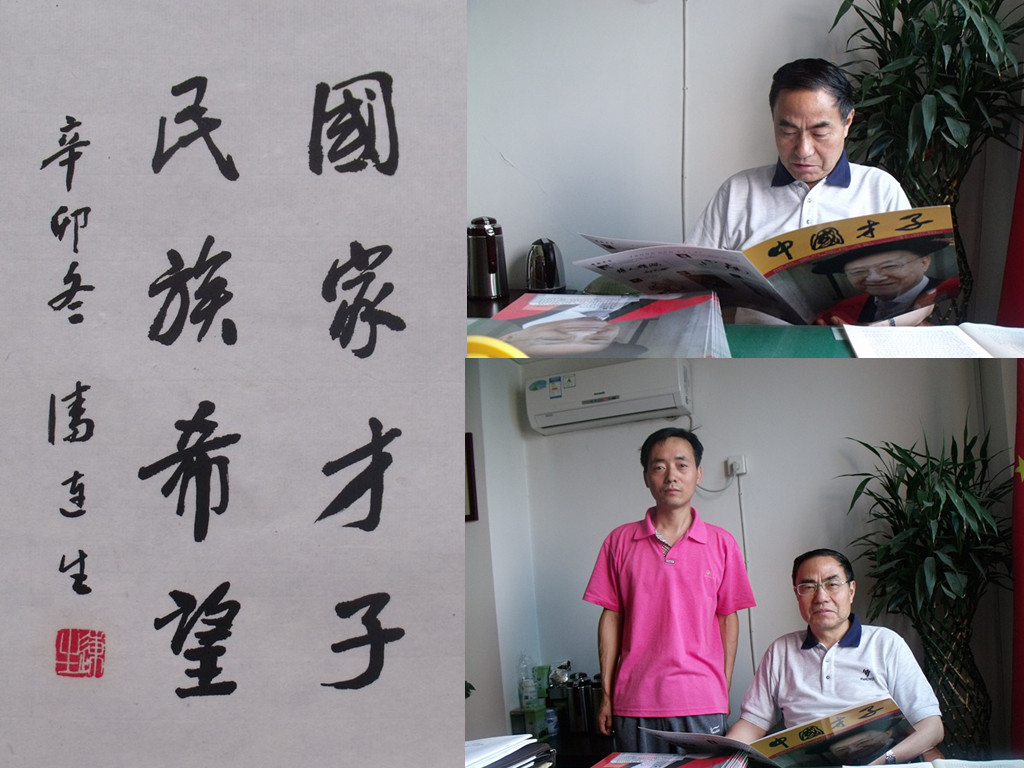 國家才子
民族希望
辛卯冬 连生
連生
中國才子
中國才子